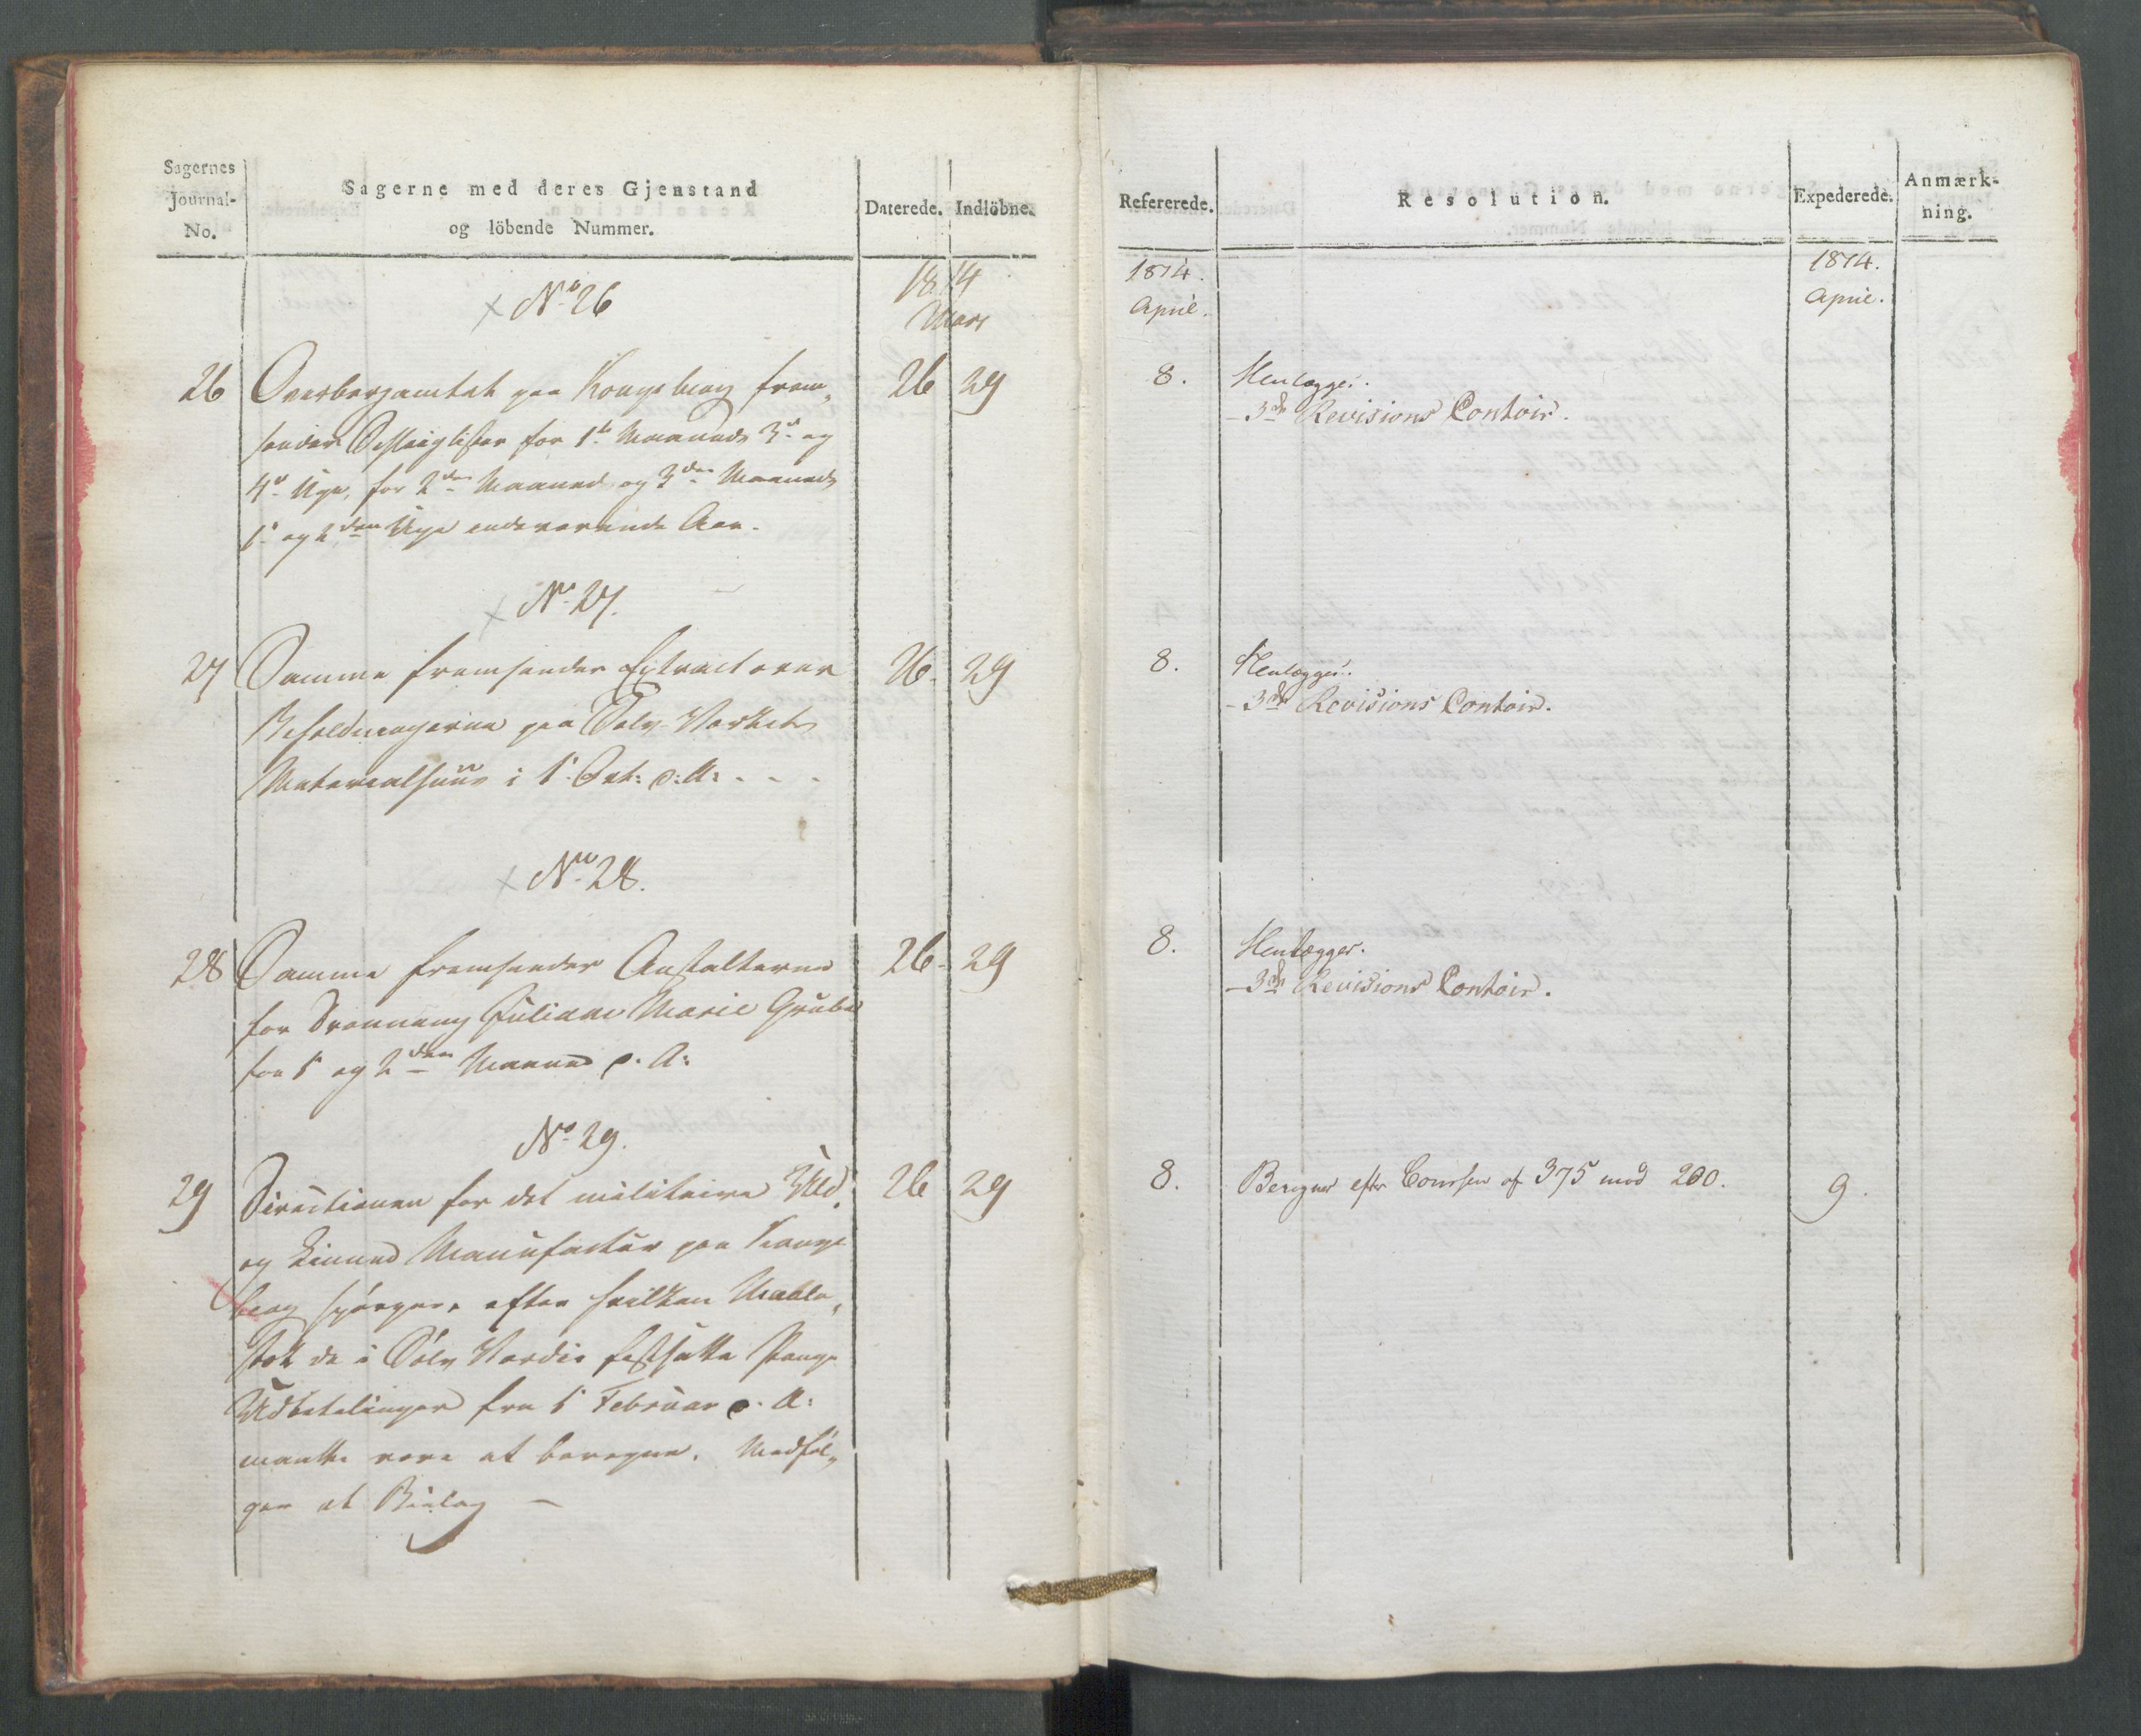 Sagernes
Journal-
No.
Sagerne med deres Gjenstand
og löbende Nummer.
Daterede.
Indlöbne.
1814
Mars
No 26
26 Overbergamtet paa Kongsberg frem„ 26 29
sender for 1ste Maaneds 3die og
4de Uge, for 2den Maaned og 3den Maaneds
1ste og 2den Uge indeværende Aar.
No 27.
27 Samme fremsender Extract over 26. 29
Beholdningerne paa Sølv-Værkets
Materialhuus i 1. c: A:
No 28.
28 Samme fremsender Anstalterne 26. 29
for Dronning Juliane Marie Grube
for 1 og 2den Maaned c. A:
No 29.
29 Directionen for det militaire Uld 26 29
og Linned Manufactur paa Kongs
berg spørger, efter hvilken
de i Sølv Værdie fastsatte
Udbetalinger fra 1 Februar c. A:
maatte være at beregne. Medføl„
ger et Bielag —
Refererede.
Resolution.
Expederede.
Anmærk-
ning.
1814.
April.
1814.
April.
8. Henlægges.
– 3die Revisions Contoir.
8. Henlægges.
– 3die Revisions Contoir.
8. Henlægges.
– 3die Revisions Contoir.
8. Beregnes efter Coursen af 375 mod 200. 9.